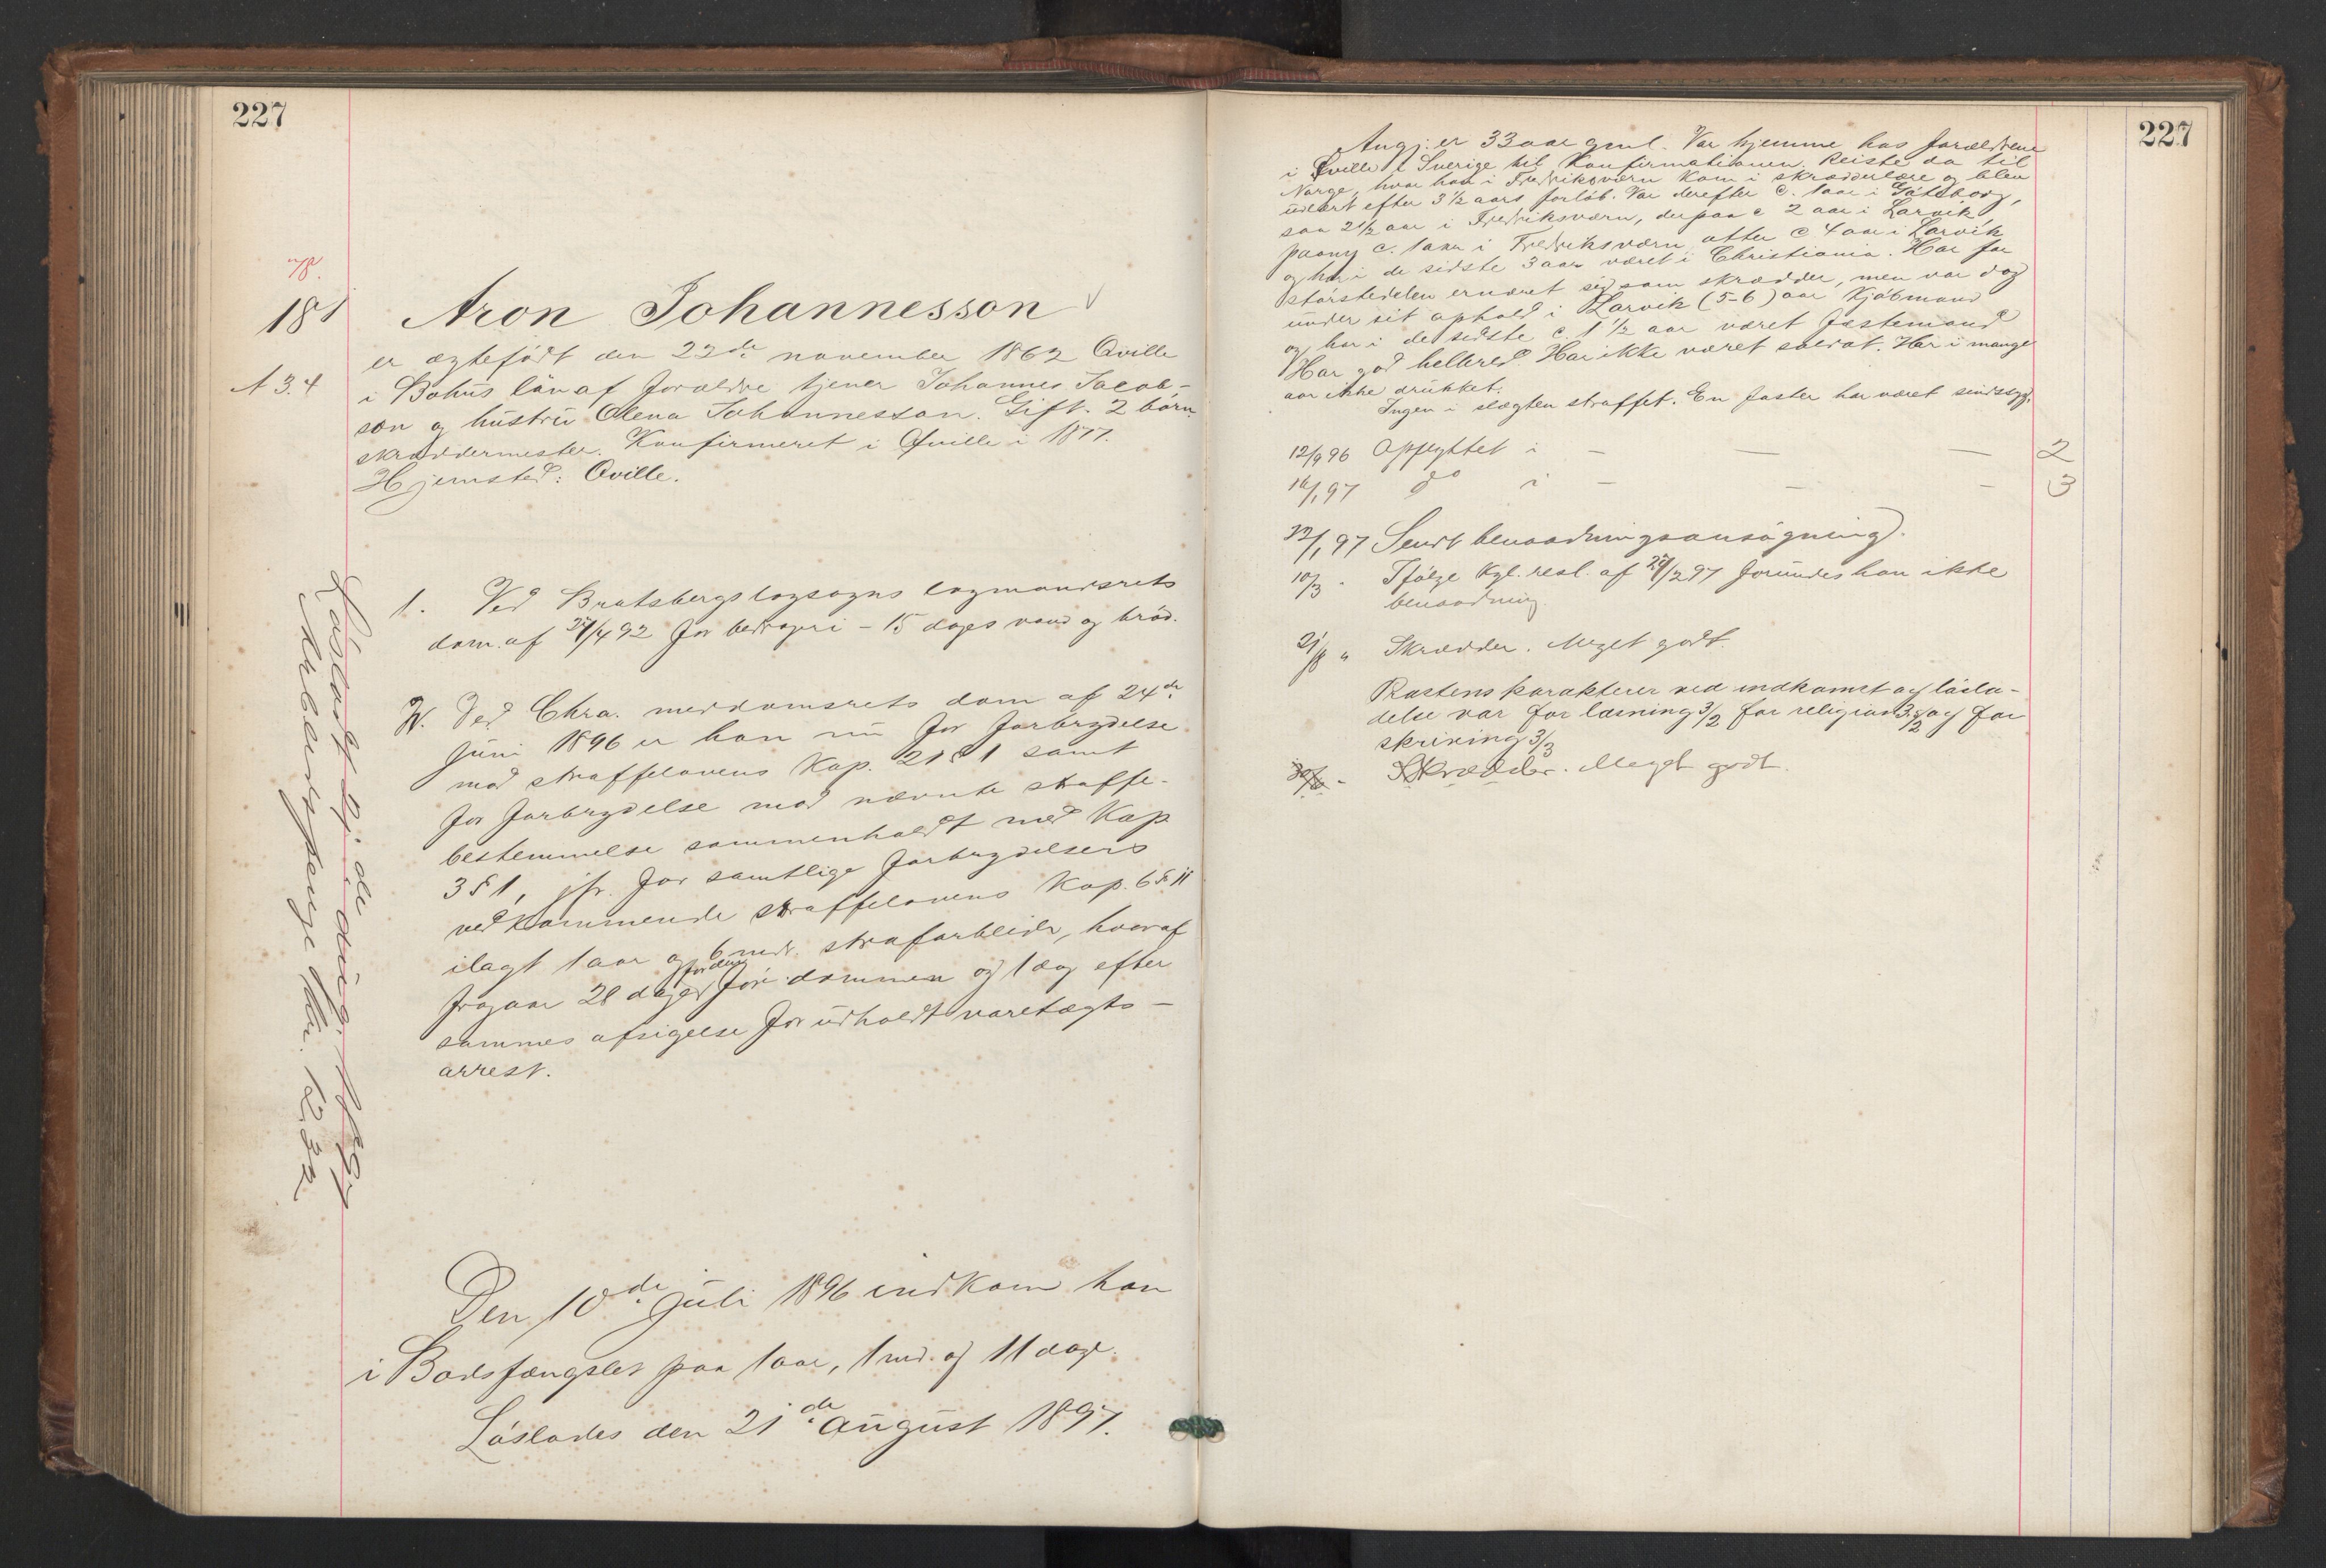 227
181
A 3.4
Aron Johannesson
er ægtefödt den 22de november 1862 Qville
i Bohus län af forældre tjener Johannes Jacob-
son og hustru Olena Johannesson. Gift. 2 börn.
skræddermester. Konfirmeret i Qville i 1877.
Hjemsted: Qville.
1. Ved Bratsbergs lagsogns lagmandsrets
dom af 27/4 92 for bedrageri - 15 dages vand og bröd.
Ved Chra. meddomsrets dom af 24de
Juni 1896 er han nu for forbrydelse
mod straffelovens Kap. 21 § 1 samt
for forbrydelse mod nævnte straffe-
bestemmelse sammenholdt med Kap
3 § 1, jfr. for samtlige forbrydelsers
vedkommende straffelovens Kap. 6 § 11
ilagt 1 aar og 6 mdr. strafarbeide, hvoraf
fragaar 28 dage för dommen og 1 dag efter
sammes afsigelse for udholdt varetægts-
arrest.
Den 10de juli 1896 indkom han
i Bodsfængslet paa 1 aar, 1 md. og 11 dage.
Löslades den 21de august 1897.
Lösladt 21de aug.
Arbeidspenge kr. 12.32
227
Angj. er 33 aar gml. Var hjemme hos forældrene
i Qville i Sverige til Konfirmationen. Reiste da til
Norge, hvor han i Fredriksværn kom i skrædderlære og blev
udlært efter 3 1/2 aars forløb. Var derefter c. 1 aar i Göteborg,
saa 2 1/2 aar i Fredriksværn, derpaa c 2 aar i Larvik,
paany c. 1 aar i Fredriksværn atter c 4 aar i Larvik
og har i de sidste 3 aar været i Christiania. Har for
störstedelen ernæret sig som skrædder, men var dog
under sit ophold i Larvik (5-6) aar Kjöbmand
og har i de sidste c. 1 1/2 aar været
Har god helbred. Har ikke været soldat. Har i mange
aar ikke drukket.
Ingen i slægten straffet. En faster har været sindssyg.
12/9 96 Opflyttet i - - - 2
16/1 97 do i - - - 3
/1 97 Sendt benaadningsansögning.
10/3 - Ifölge Kgl. resl. af 27/2 97 forundes han ikke
benaadning
21/8 " Skrædder. Meget godt.
Prestens karakterer ved indkomst og lösla-
delse var for læsning 3/2 for religion 3.5/2 og for
skrivning 3/3
Skrædder. Meget godt.